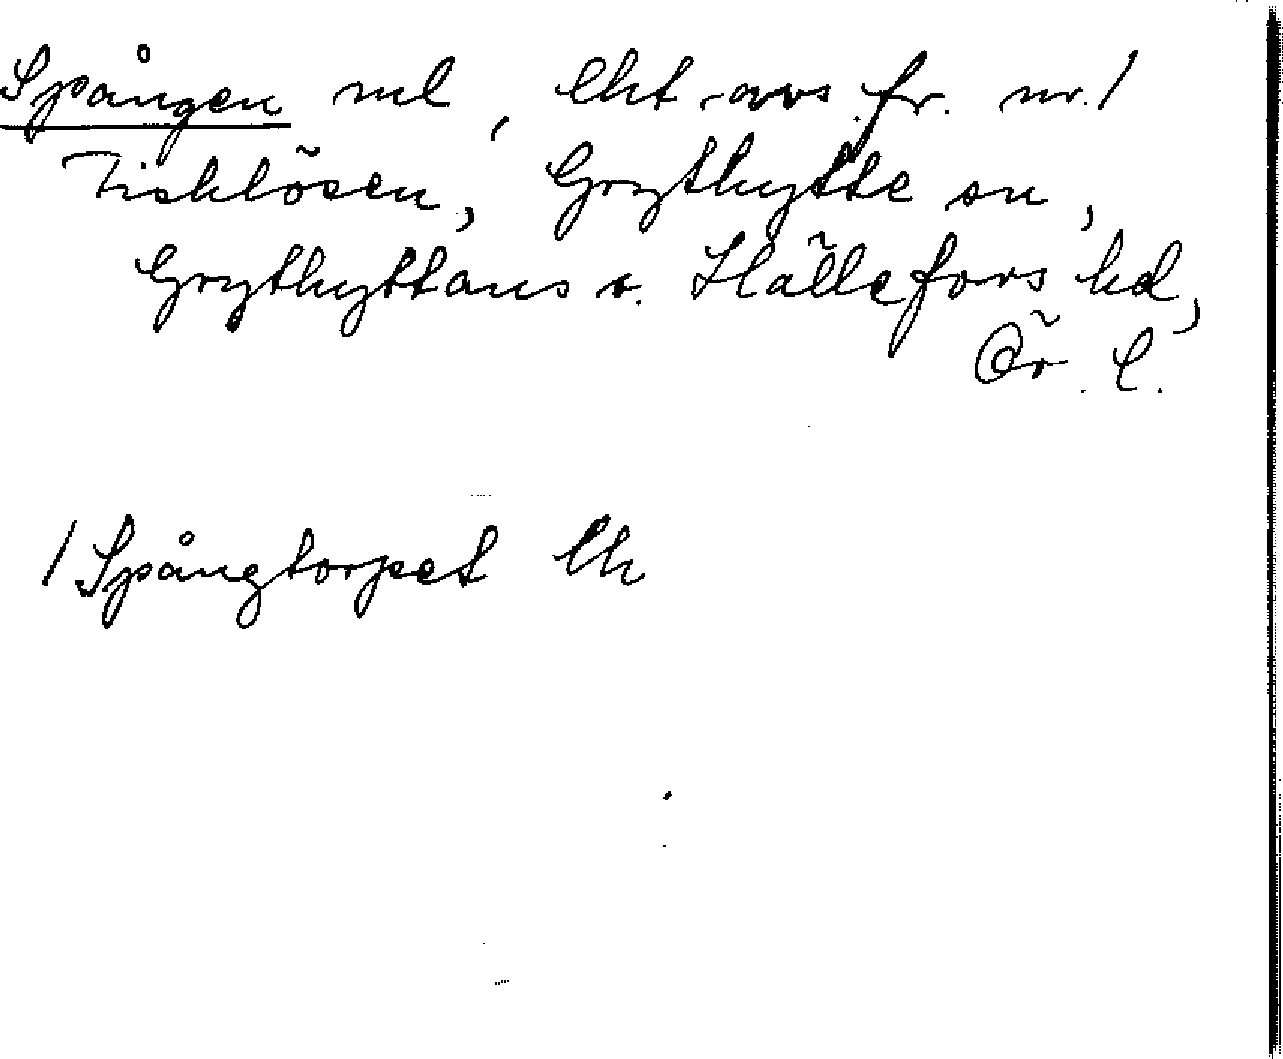 Spången nel, lht avs. fr. nr. 1
Fisklösen, Grythytte sn,
Grythyttans o. Hällefors hd,
Ör. l.
/ Spångtorpet lh